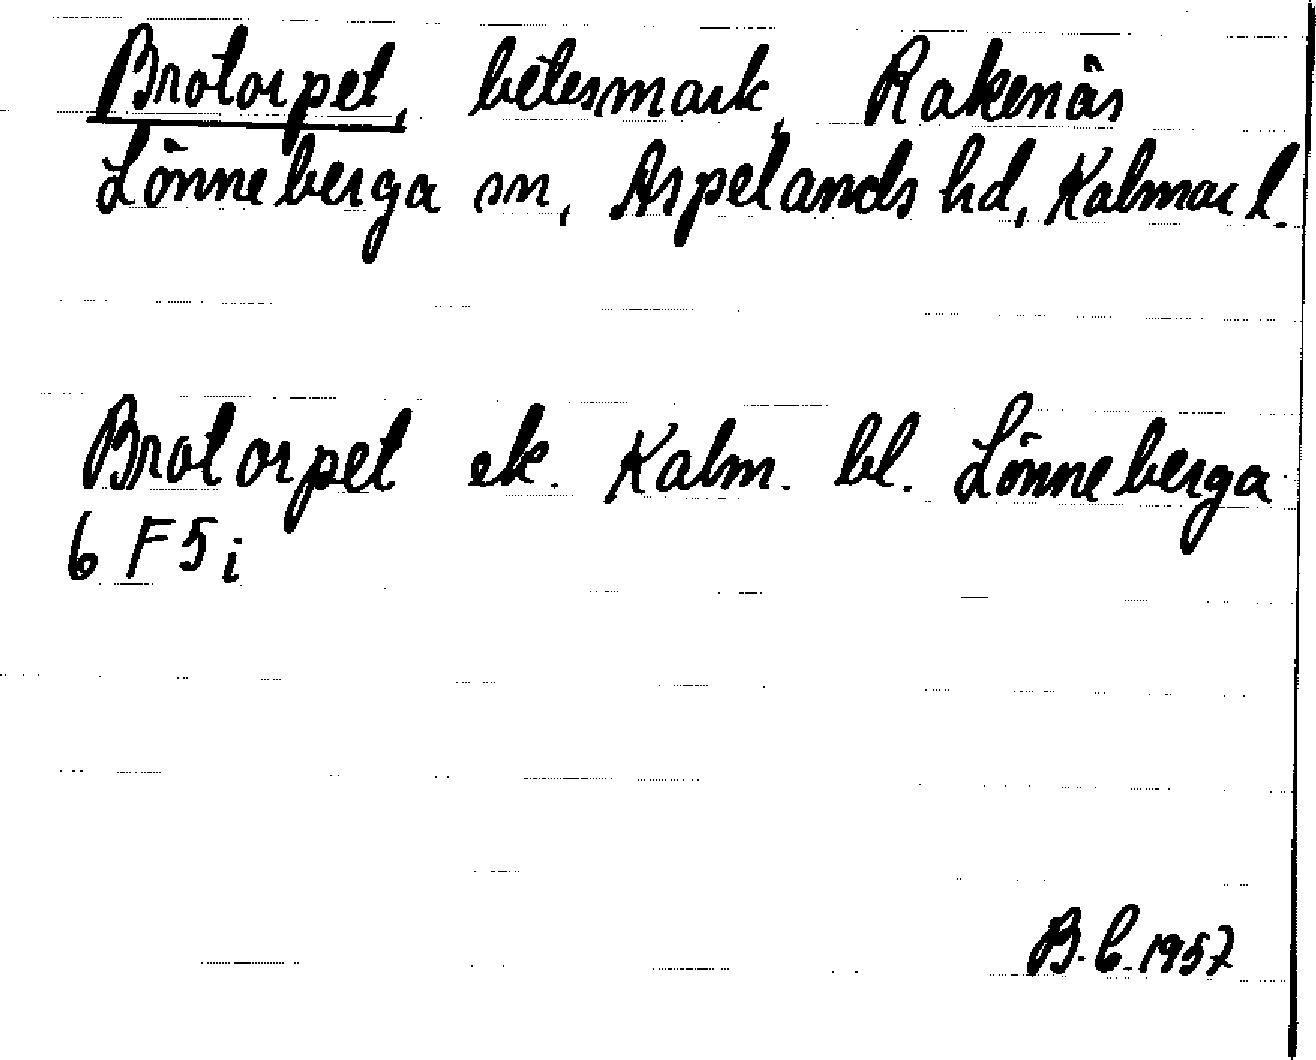 Brotorpet, betesmark, Rakenäs
Lönneberga sn, Aspelands hd, Kalmar l.
Brotorpet ek. Kalm. bl. Lönneberga
6 F 5 i
B. C. 1957